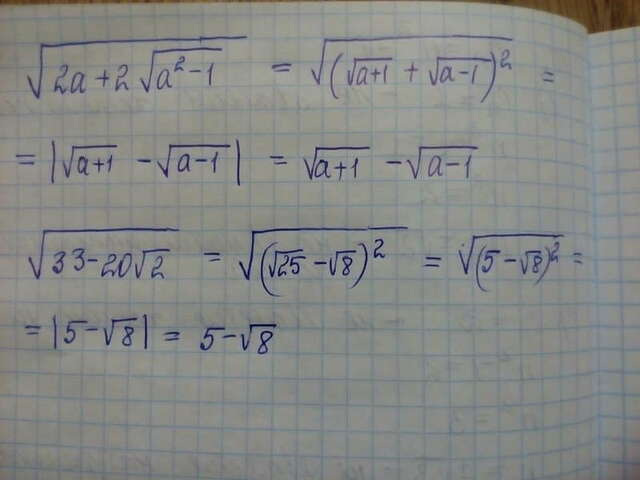 √(2a+2√(a²-1)) = √((√(a+1) + √(a-1))²) =
= |√(a+1) - √(a-1)| = √(a+1) - √(a-1)
√(33-20√2) = √((√25 - √8)²) = √((5-√8)²) =
= |5-√8| = 5-√8